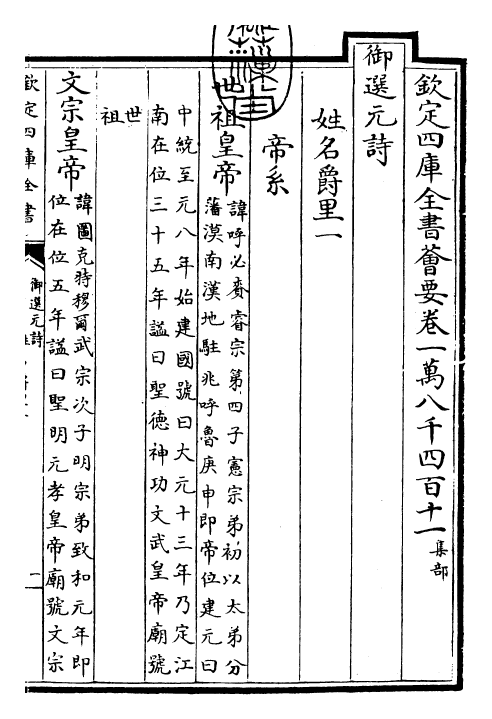 欽定四庫全書薈要卷一萬八千四百十一集部
御選元詩
姓名爵里一
帝系
世祖皇帝
諱呼必賚睿宗第四子憲宗弟初以太弟分
藩漠南漢地駐兆呼魯庚申即帝位建元曰
中統至元八年始建國號曰大元十三年乃定江
南在位三十五年謚曰聖德神功文武皇帝廟號
世祖
文宗皇帝
諱圖克特穆爾武宗次子明宗弟致和元年即
位在位五年謚曰聖明元孝皇帝廟號文宗
欽定四庫全書
御選元詩
一